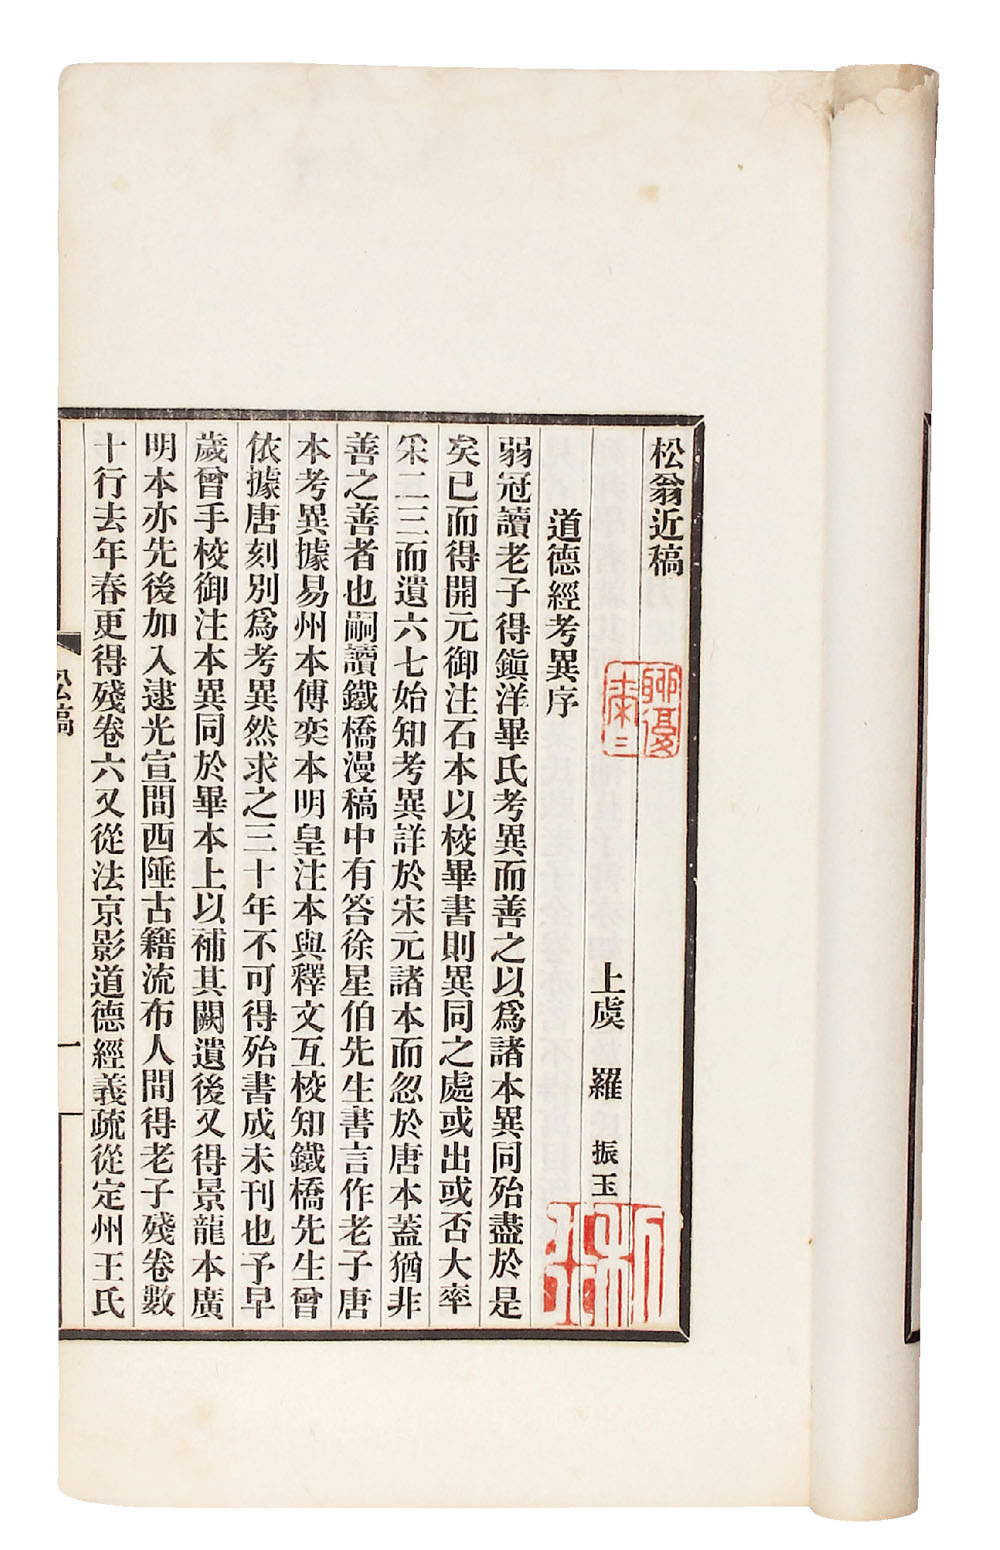 松翁近稿
上虞 羅 振玉
道德經考異序
弱冠讀老子得鎮洋畢氏考異而善之以爲諸本異同殆盡於是
矣已而得開元御注石本以校畢書則異同之處或出或否大率
采二三而遺六七始知考異詳於宋元諸本而忽於唐本蓋猶非
善之善者也嗣讀鐵橋漫稿中有答徐星伯先生書言作老子唐
本考異據易州本傅奕本明皇注本與釋文互校知鐵橋先生曾
依據唐刻別爲考異然求之三十年不可得殆書成未刊也予早
歲曾手校御注本異同於畢本上以補其闕遺後又得景龍本廣
明本亦先後加入逮光宣間西陲古籍流布人間得老子殘卷數
十行去年春更得殘卷六又從法京影道德經義疏從定州王氏
松稿
一